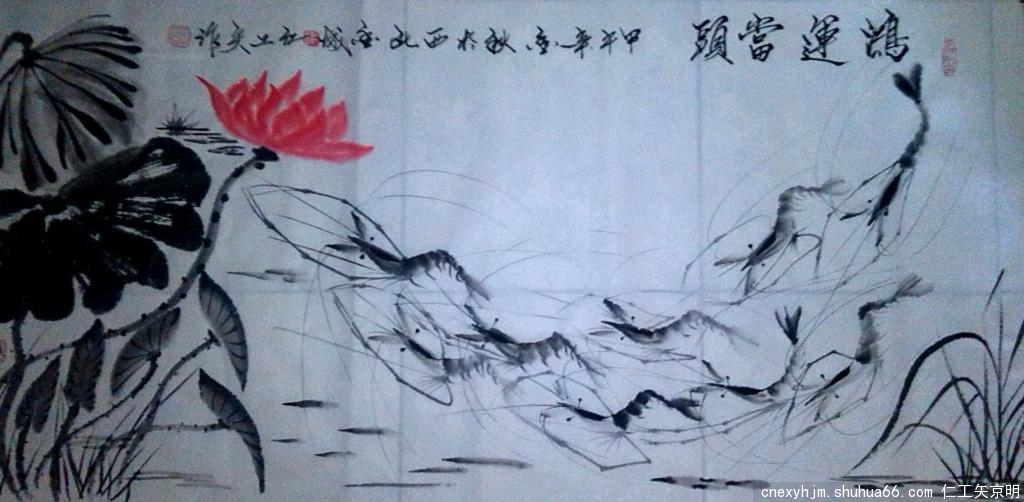 鴻運當頭
甲午年金秋於西北金城仁工矢作
cnexyhjm.shuhua66.com 仁工矢京明